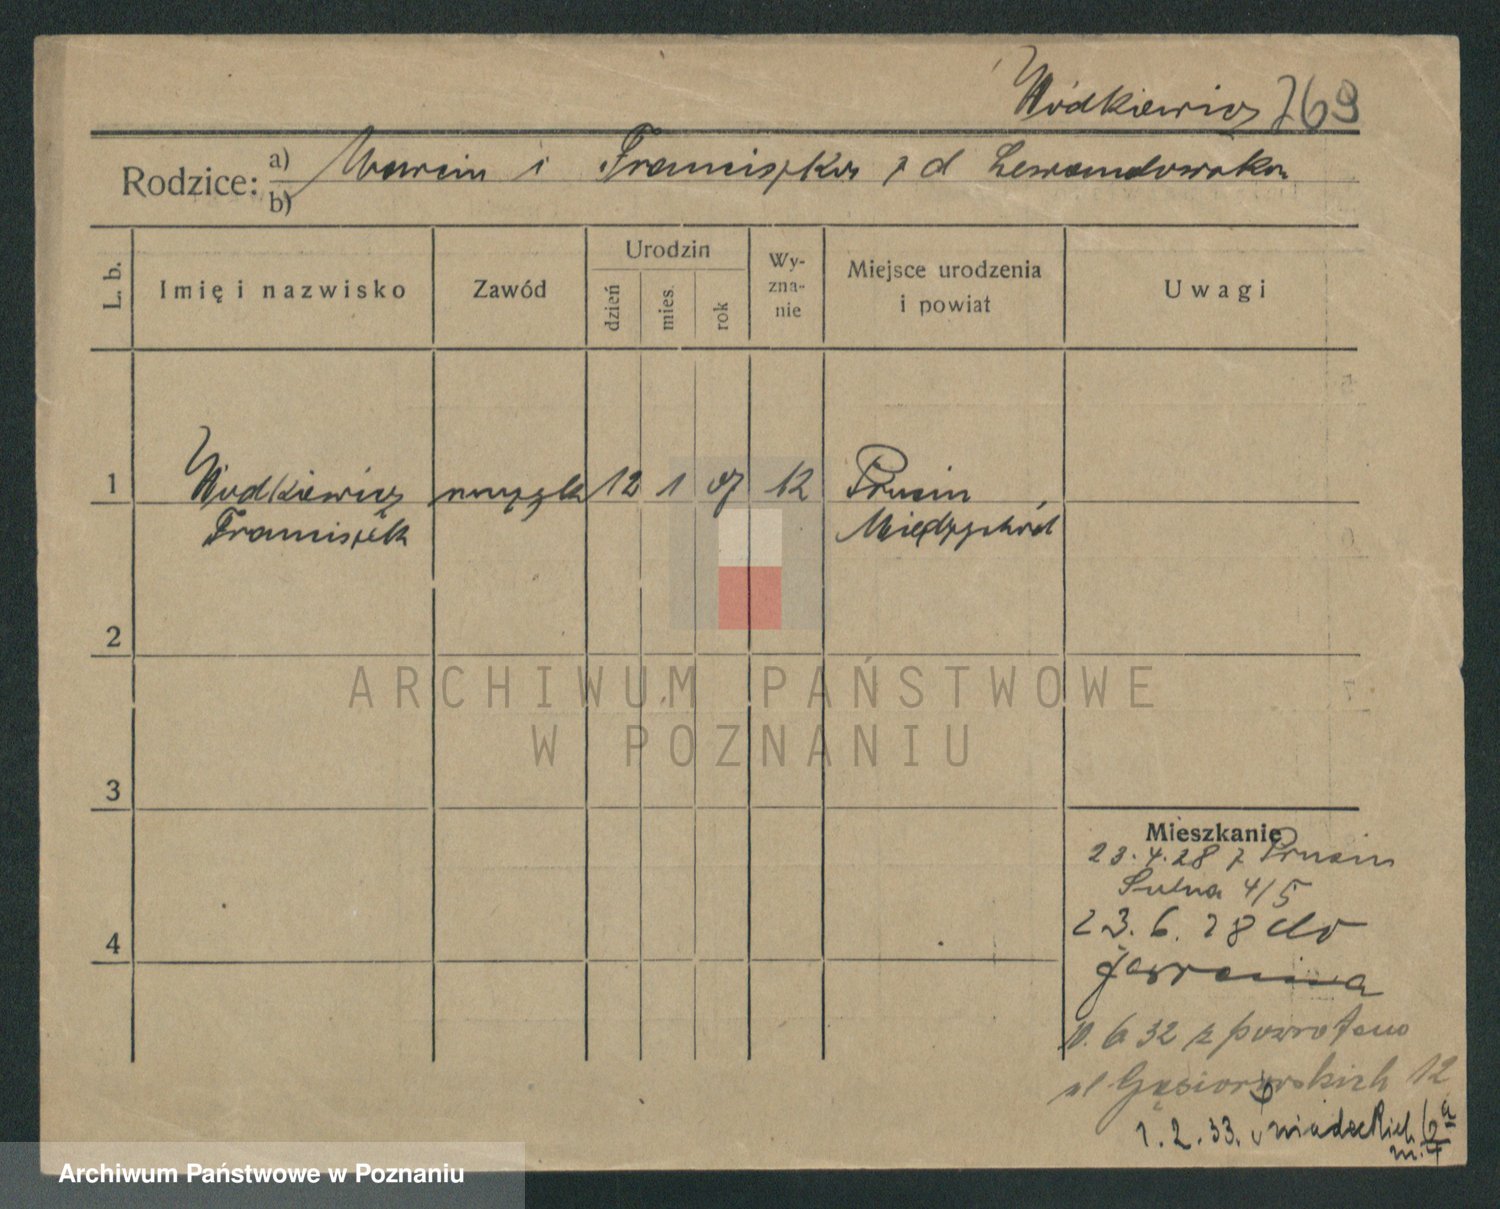 Wódkiewicz 769
Rodzice: a) Marcin i Franciszka z d Lewandowska
b)
L. b. Imię i nazwisko Zawód Urodzin dzień mies. rok Wy-zna-nie Miejsce urodzenia i powiat Uwagi
1 Wódkiewicz 12 1 07 Prusin
Franciszek Międzychód
2
3
4
Mieszkanie
23.4.28 z Prusin
4/5
23.6.28 do
10.6 32 z powrotem
ul Gąsiorowskich 12
1.2.33. Śniadeckich 12a
m. 7
ARCHIWUM PAŃSTWOWE
W POZNANIU
Archiwum Państwowe w Poznaniu